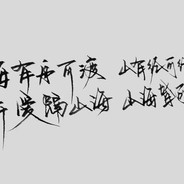 海有舟可渡 山有径可
所爱隔山海 山海皆可